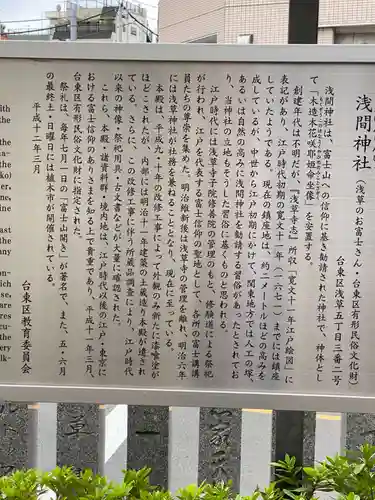 浅間神社（浅草のお富士さん・台東区有形民俗文化財）
台東区浅草五丁目三番二号
浅間神社は、富士山への信仰に基づき勧請された神社で、神体とし
て「木造木花咲耶姫命坐像」を安置する。
創建年代は不明だが、『浅草寺志』所収「寛文十一年江戸絵図」に
表記があり、江戸時代初期の寛文十一年（一六七一）までには鎮座
していたようである。現在の鎮座地は、約二メートルほどの高みを
成しているが、中世から江戸の初期にかけて、関東地方では人工の塚、
あるいは自然の高みに浅間神社を勧請する習俗があったとされてお
り、当神社の立地もそうした習俗に基づくものと思われる。
江戸時代には浅草寺子院修善院の管理のもと、修験道による祭祀
が行われ、江戸を代表する富士信仰の聖地として、各所の富士講講
員たちの尊崇を集めた。明治維新後は浅草寺の管理を離れ、明治六年
には浅草神社が社務を兼ねることとなり、現在に至っている。
本殿は、平成九・十年の改修工事によって外観のみ新たに漆喰塗が
ほどこされたが、内部には明治十一年建築の土蔵造り本殿が遺され
ている。さらに、この改修工事に伴う所蔵品調査により、江戸時代
以来の神像・祭祀用具・古文書などが大量に確認された。
これら、本殿・諸資料群・境内地は、江戸時代以降の江戸・東京に
おける富士信仰のありさまを知る上で貴重であり、平成十一年三月、
台東区有形民俗文化財に指定された。
祭礼は、毎年七月一日の「富士山開き」が著名で、また、五・六月
の最終土・日曜日には植木市が開催されている。
平成十二年三月
台東区教育委員会